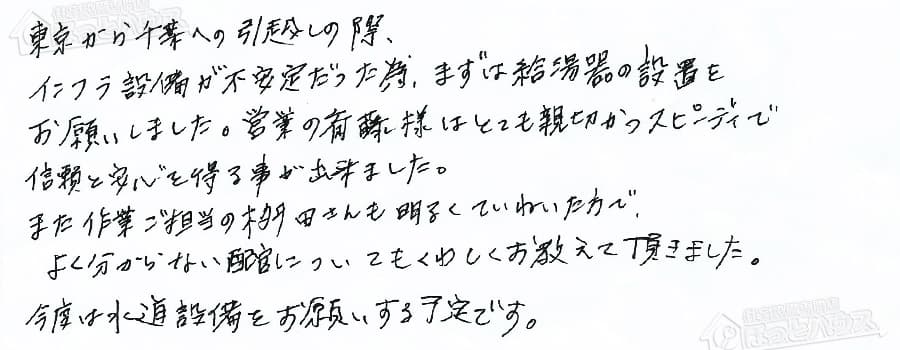 東京から千葉への引越しの際、
インフラ設備が不安定だった為、まずは給湯器の設置を
お願いしました。営業の斉藤様はとても親切かつスピーディで
信頼と安心を得る事が出来ました。
また作業ご担当の椚田さんも明るくていねいな方で、
よく分からない配管についてもくわしくお教えて頂きました。
今度は水道設備をお願いする予定です。
ほっとハウス